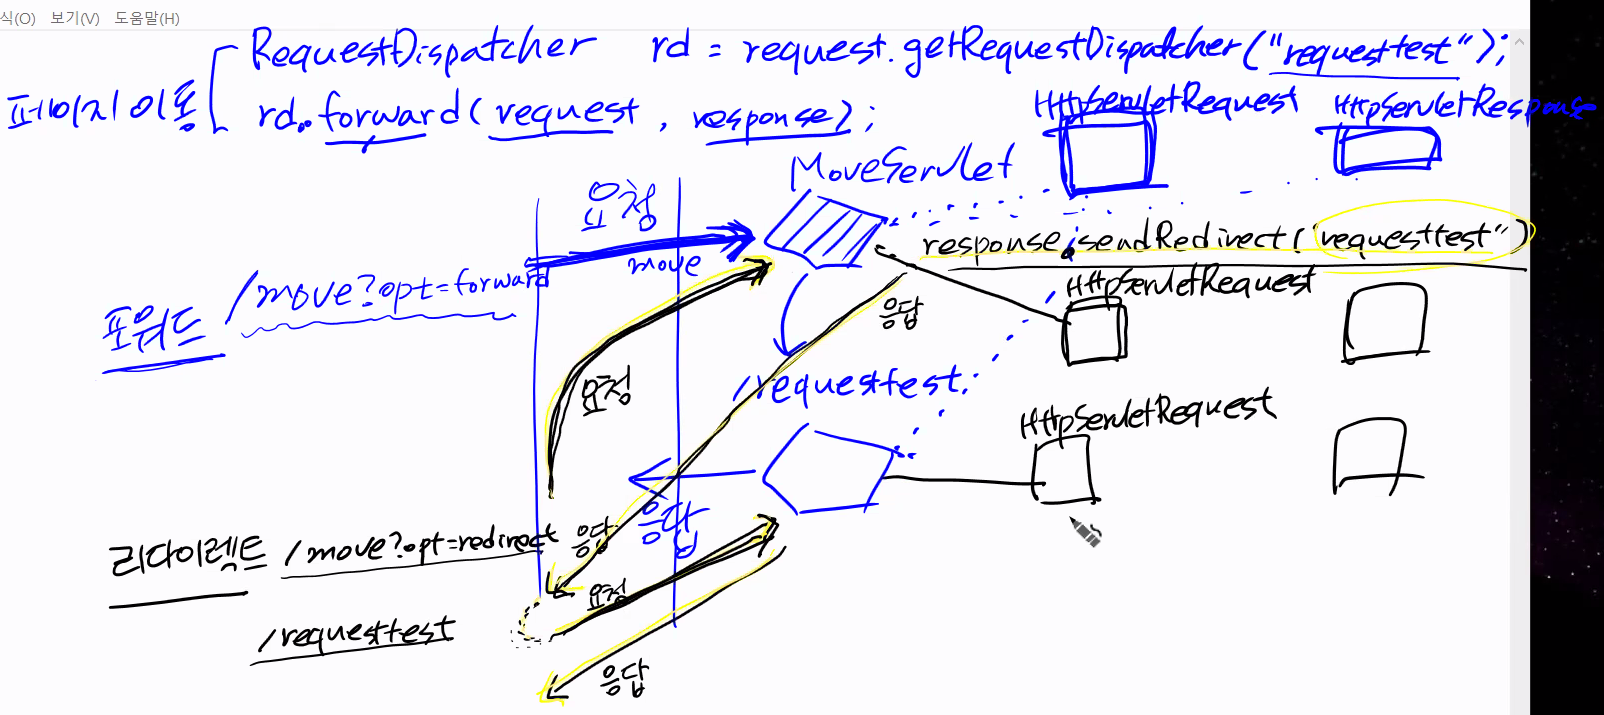 식(O) 보기(V) 도움말(H)
RequestDispatcher rd = request.getRequestDispatcher("requesttest");
페이지 이동
rd.forward(request, response);
HttpServletRequest HttpServletResponse
MoveServlet
요청
response.sendRedirect("requesttest")
move
/move?opt=forward
HttpServletRequest
포워드
응답
요청
/requesttest
HttpServletRequest
응답
응답
리다이렉트 /move?opt=redirect
요청
/requesttest
응답